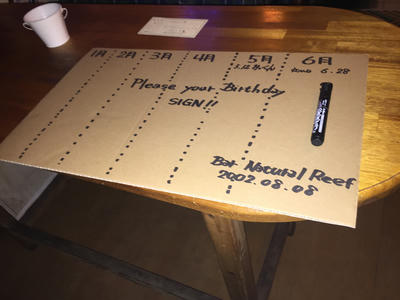 1月 2月 3月 4月 5月 6月
6.28
Please your Birthday
SIGN!!
Bar Natural Reef
2002.08.08